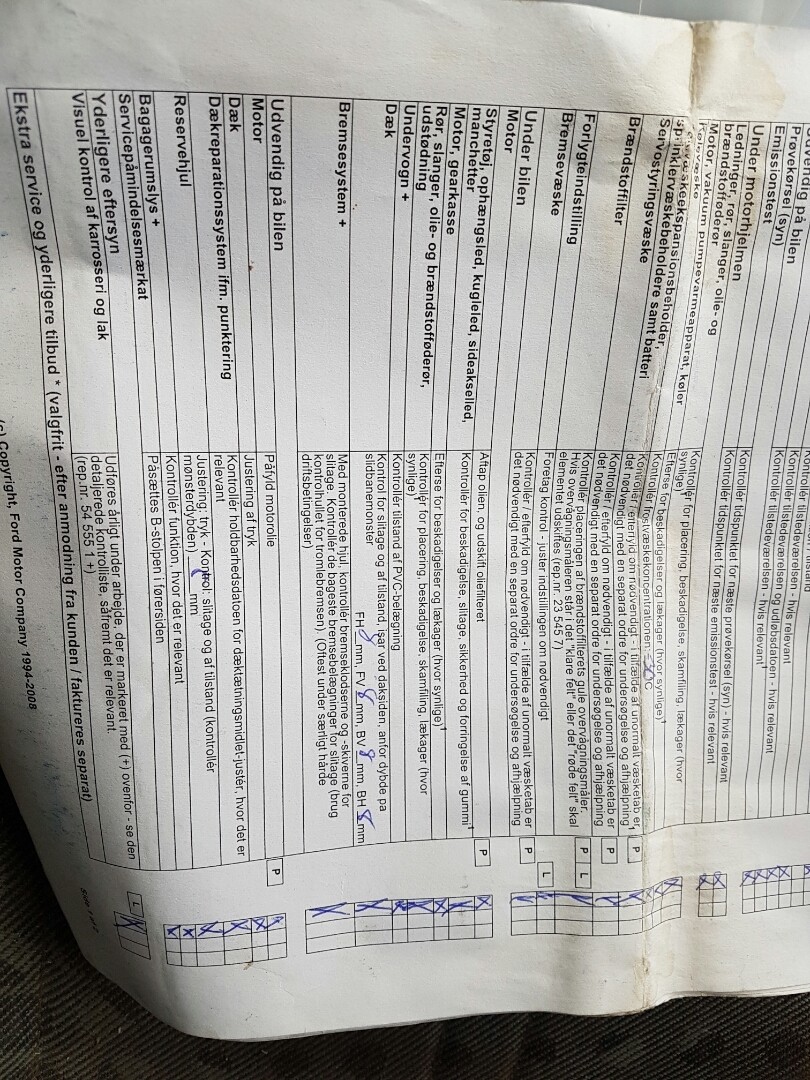 Udvendig på bilen
Prøvekørsel (syn) Kontrollér tilstedeværelsen - hvis relevant
Emissionstest Kontrollér tilstedeværelsen og udløbsdatoen - hvis relevant
Kontrollér tilstedeværelsen - hvis relevant¹
Under motorhjelmen
Ledninger, rør, slanger, olie- og
brændstofføderør
Kontrollér tidspunktet for næste prøvekørsel (syn) - hvis relevant
Kontrollér tidspunktet for næste emissionstest - hvis relevant
Motor, vakuum, pumpevarmeapparat, køler
Kontrollér for placering, beskadigelse, skamfiling, lækager (hvor
synlige)¹
Efterse for beskadigelser og lækager (hvor synlige)¹
sprinklervæskebeholdere samt batteri
Kontrollér frostvæskekoncentrationen: °C
Servostyringsvæske
Kontrollér / efterfyld om nødvendigt - i tilfælde af unormalt væsketab er
det nødvendigt med en separat ordre for undersøgelse og afhjælpning¹
P
Kontrollér / efterfyld om nødvendigt - i tilfælde af unormalt væsketab er
det nødvendigt med en separat ordre for undersøgelse og afhjælpning
P
Brændstoffilter
Kontrollér placeringen af brændstoffilterets gule overvågningsmåler.
Hvis overvågningsmåleren står i det "klare felt" eller det "røde felt" skal
elementet udskiftes (rep.nr. 23 545 7)
P L
Forlygteindstilling Foretag kontrol - juster indstillingen om nødvendigt L
Bremsevæske Kontrollér / efterfyld om nødvendigt - i tilfælde af unormalt væsketab er
det nødvendigt med en separat ordre for undersøgelse og afhjælpning
P
Under bilen
Motor Aftap olien, og udskift oliefilteret P
Styretøj, ophængsled, kugleled, sideakselled,
manchetter
Kontrollér for beskadigelse, slitage, sikkerhed og forringelse af gummi¹
Motor, gearkasse Efterse for beskadigelser og lækager (hvor synlige)¹
Rør, slanger, olie- og brændstofføderør,
udstødning
Kontrollér for placering, beskadigelse, skamfiling, lækager (hvor
synlige)¹
Undervogn + Kontrollér tilstand af PVC-belægning
Dæk Kontrol for slitage og af tilstand, især ved dæksiden, anfør dybde på
slidbanemønster
FH 8 mm, FV 8 mm, BV 8 mm, BH 8 mm
Bremsesystem + Med monterede hjul, kontrollér bremseklodserne og -skiverne for
slitage. Kontrollér de bageste bremsebelægninger for slitage (brug
kontrolhullet for tromlebremsen). (Oftest under særligt hårde
driftsbetingelser)
Udvendig på bilen
Motor Påfyld motorolie P
Dæk Justering af tryk
Dækreparationssystem ifm. punktering Kontrollér holdbarhedsdatoen for dæktætningsmidlet-justér, hvor det er
relevant
Reservehjul Justering: tryk - Kontrol: slitage og af tilstand (kontrollér
mønsterdybden) mm
Bagagerumslys + Kontrollér funktion, hvor det er relevant
Servicepåmindelsesmærkat Påsættes B-stolpen i førersiden
Yderligere eftersyn
Visuel kontrol af karrosseri og lak Udføres årligt under arbejde, der er markeret med (+) ovenfor - se den
detaljerede kontrolliste, såfremt det er relevant.
(rep.nr. 54 555 1 +)
L
Ekstra service og yderligere tilbud * (valgfrit - efter anmodning fra kunden / faktureres separat)
(c) Copyright, Ford Motor Company 1994-2008